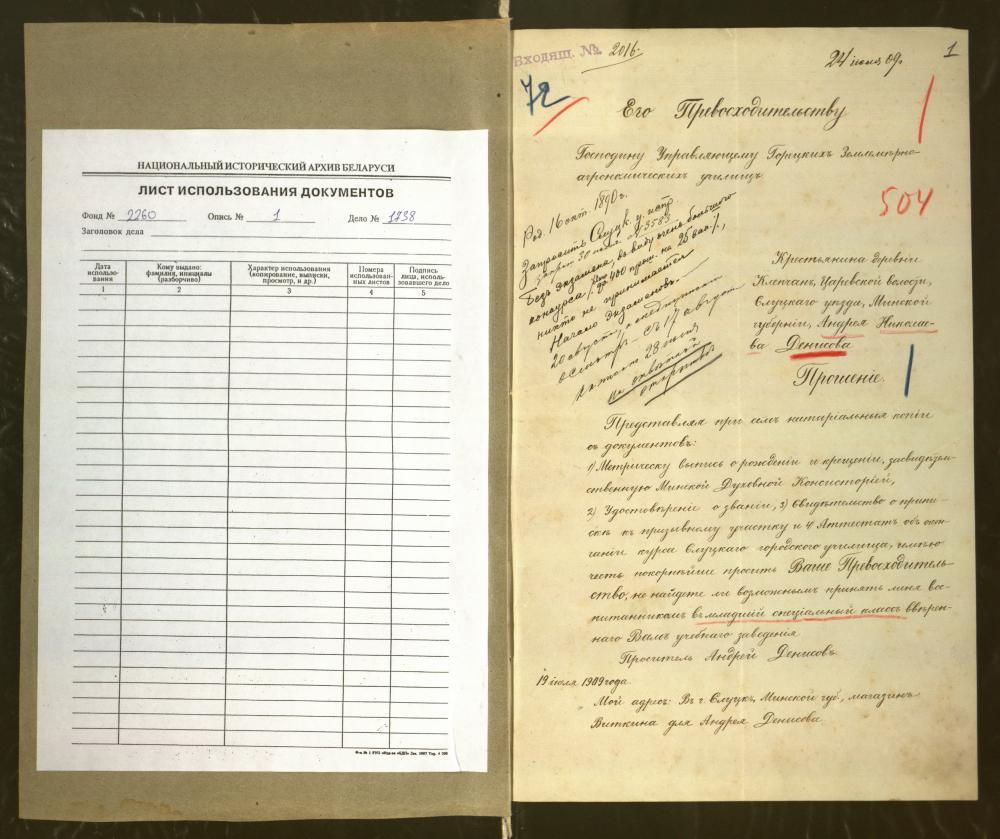 НАЦИОНАЛЬНЫЙ ИСТОРИЧЕСКИЙ АРХИВ БЕЛАРУСИ
ЛИСТ ИСПОЛЬЗОВАНИЯ ДОКУМЕНТОВ
Фонд № 2260 Опись № 1 Дело № 1738
Заголовок дела
Дата использования
Кому выдано: фамилия, инициалы (разборчиво)
Характер использования (копирование, выписки, просмотр, и др.)
Номера использованных листов
Подпись лица, использовавшего дело
1 2 3 4 5
Входящ. № 2016.
24 июля 09г.
1
72
Его Превосходительству
Господину Управляющему Горецкихъ Землемѣрно-
агрономическихъ училищъ
504
Род. 16 окт. 1890 г.
Запросить Слуцк. у. испр.
30 июл. № 3583
Безъ экзамена, въ виду очень большого
конкурса (до 400 прош. на 25 вак.),
никто не принимается
Начало экзаменовъ
20 августа, а медицинскаго
осмотра — съ 17 августа
28 июля
открытое
Крестьянина деревни
Клепчанъ, Царевской волости,
Слуцкаго уѣзда, Минской
губерніи, Андрея Николае-
ва Денисова
Прошеніе.
Представляя при семъ натаріальныя копіи
съ документовъ:
1) Метрическу выпись о рожденіи и крещеніи, засвидѣтель-
ственную Минской Духовной Консисторіей,
2) Удостовѣреніе о званіи, 3) Свидѣтельство о припи-
скѣ къ призывному участку и 4 Аттестатъ объ окон-
чаніи курса Слуцкаго городского училища, имѣю
честь покорнѣйше просить Ваше Превосходитель-
ство, не найдете ли возможнымъ принять меня вос-
питанникомъ въ младшій спеціальный классъ ввѣрен-
наго Вамъ учебнаго заведенія
Проситель Андрей Денисовъ.
19 іюля 1909 года.
Мой адресъ: Въ г. Слуцкъ, Минской губ., магазинъ
Виткина для Андрея Денисова.